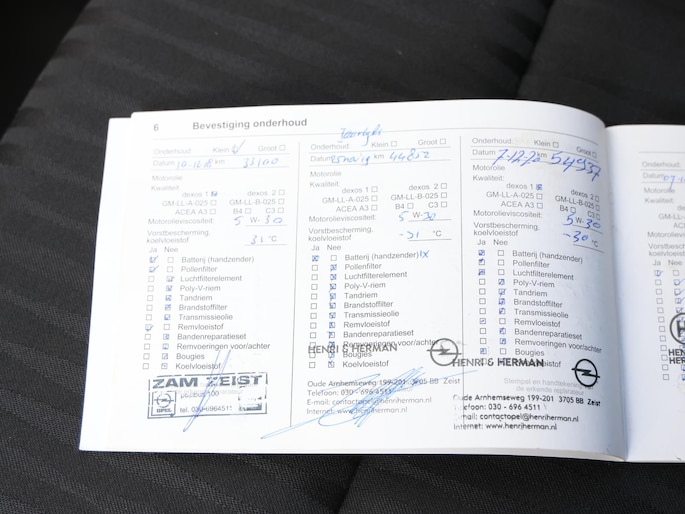 6 Bevestiging onderhoud
Onderhoud: Klein Groot
Datum 10-12-18 km 33100
Motorolie
Kwaliteit:
dexos 1 dexos 2
GM-LL-A-025 GM-LL-B-025
ACEA A3 B4 C3
Motorolieviscositeit: 5 W- 30
Vorstbescherming,
koelvloeistof 31 °C
Ja Nee
Batterij (handzender)
Pollenfilter
Luchtfilterelement
Poly-V-riem
Tandriem
Brandstoffilter
Transmissieolie
Remvloeistof
Bandenreparatieset
Remvoeringen voor/achter
Bougies
Koelvloeistof
ZAM ZEIST
postbus 100
OPEL tel. 030-6964511
Onderhoud: Klein Groot
Datum km 44852
Motorolie
Kwaliteit:
dexos 1 dexos 2
GM-LL-A-025 GM-LL-B-025
ACEA A3 B4 C3
Motorolieviscositeit: 5 W-30
Vorstbescherming,
koelvloeistof -31 °C
Ja Nee
Batterij (handzender) 1x
Pollenfilter
Luchtfilterelement
Poly-V-riem
Tandriem
Brandstoffilter
Transmissieolie
Remvloeistof
Bandenreparatieset
Remvoeringen voor/achter
HENRI & HERMAN
Bougies
Koelvloeistof
Oude Arnhemseweg 199-201 3705 BB Zeist
Telefoon: 030 - 696 4511
E-mail: contactopel@henriherman.nl
Internet: www.henriherman.nl
Onderhoud: Klein Groot
Datum 7-12-20 km 54937
Motorolie
Kwaliteit:
dexos 1 dexos 2
GM-LL-A-025 GM-LL-B-025
ACEA A3 B4 C3
Motorolieviscositeit: 5 W-30
Vorstbescherming,
koelvloeistof -30 °C
Ja Nee
Batterij (handzender)
Pollenfilter
Luchtfilterelement
Poly-V-riem
Tandriem
Brandstoffilter
Transmissieolie
Remvloeistof
Bandenreparatieset
Remvoeringen voor/achter
Bougies
HENRI & HERMAN
Koelvloeistof
Stempel en handtekening van
de erkende reparateur
Oude Arnhemseweg 199-201 3705 BB Zeist
Telefoon: 030 - 696 4511
E-mail: contactopel@henriherman.nl
Internet: www.henriherman.nl
Onderhoud:
Datum
Motorolie
Kwaliteit:
Motorolievis
Vorstbesche
koelvloeistof
Ja Nee
HENRI
Oude Ar
Telefoon
E-mail: c
Internet: